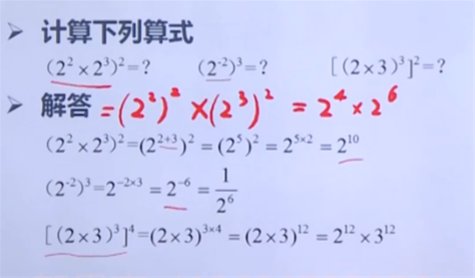 ➤ 计算下列算式
(2²×2³)²=? (2⁻²)³=? [(2×3)³]²=?
➤ 解答 =(2²)²×(2³)²=2⁴×2⁶
(2²×2³)²=(2²⁺³)²=(2⁵)²=2⁵ˣ²=2¹⁰
(2⁻²)³=2⁻²ˣ³=2⁻⁶=1/2⁶
[(2×3)³]⁴=(2×3)³ˣ⁴=(2×3)¹²=2¹²×3¹²